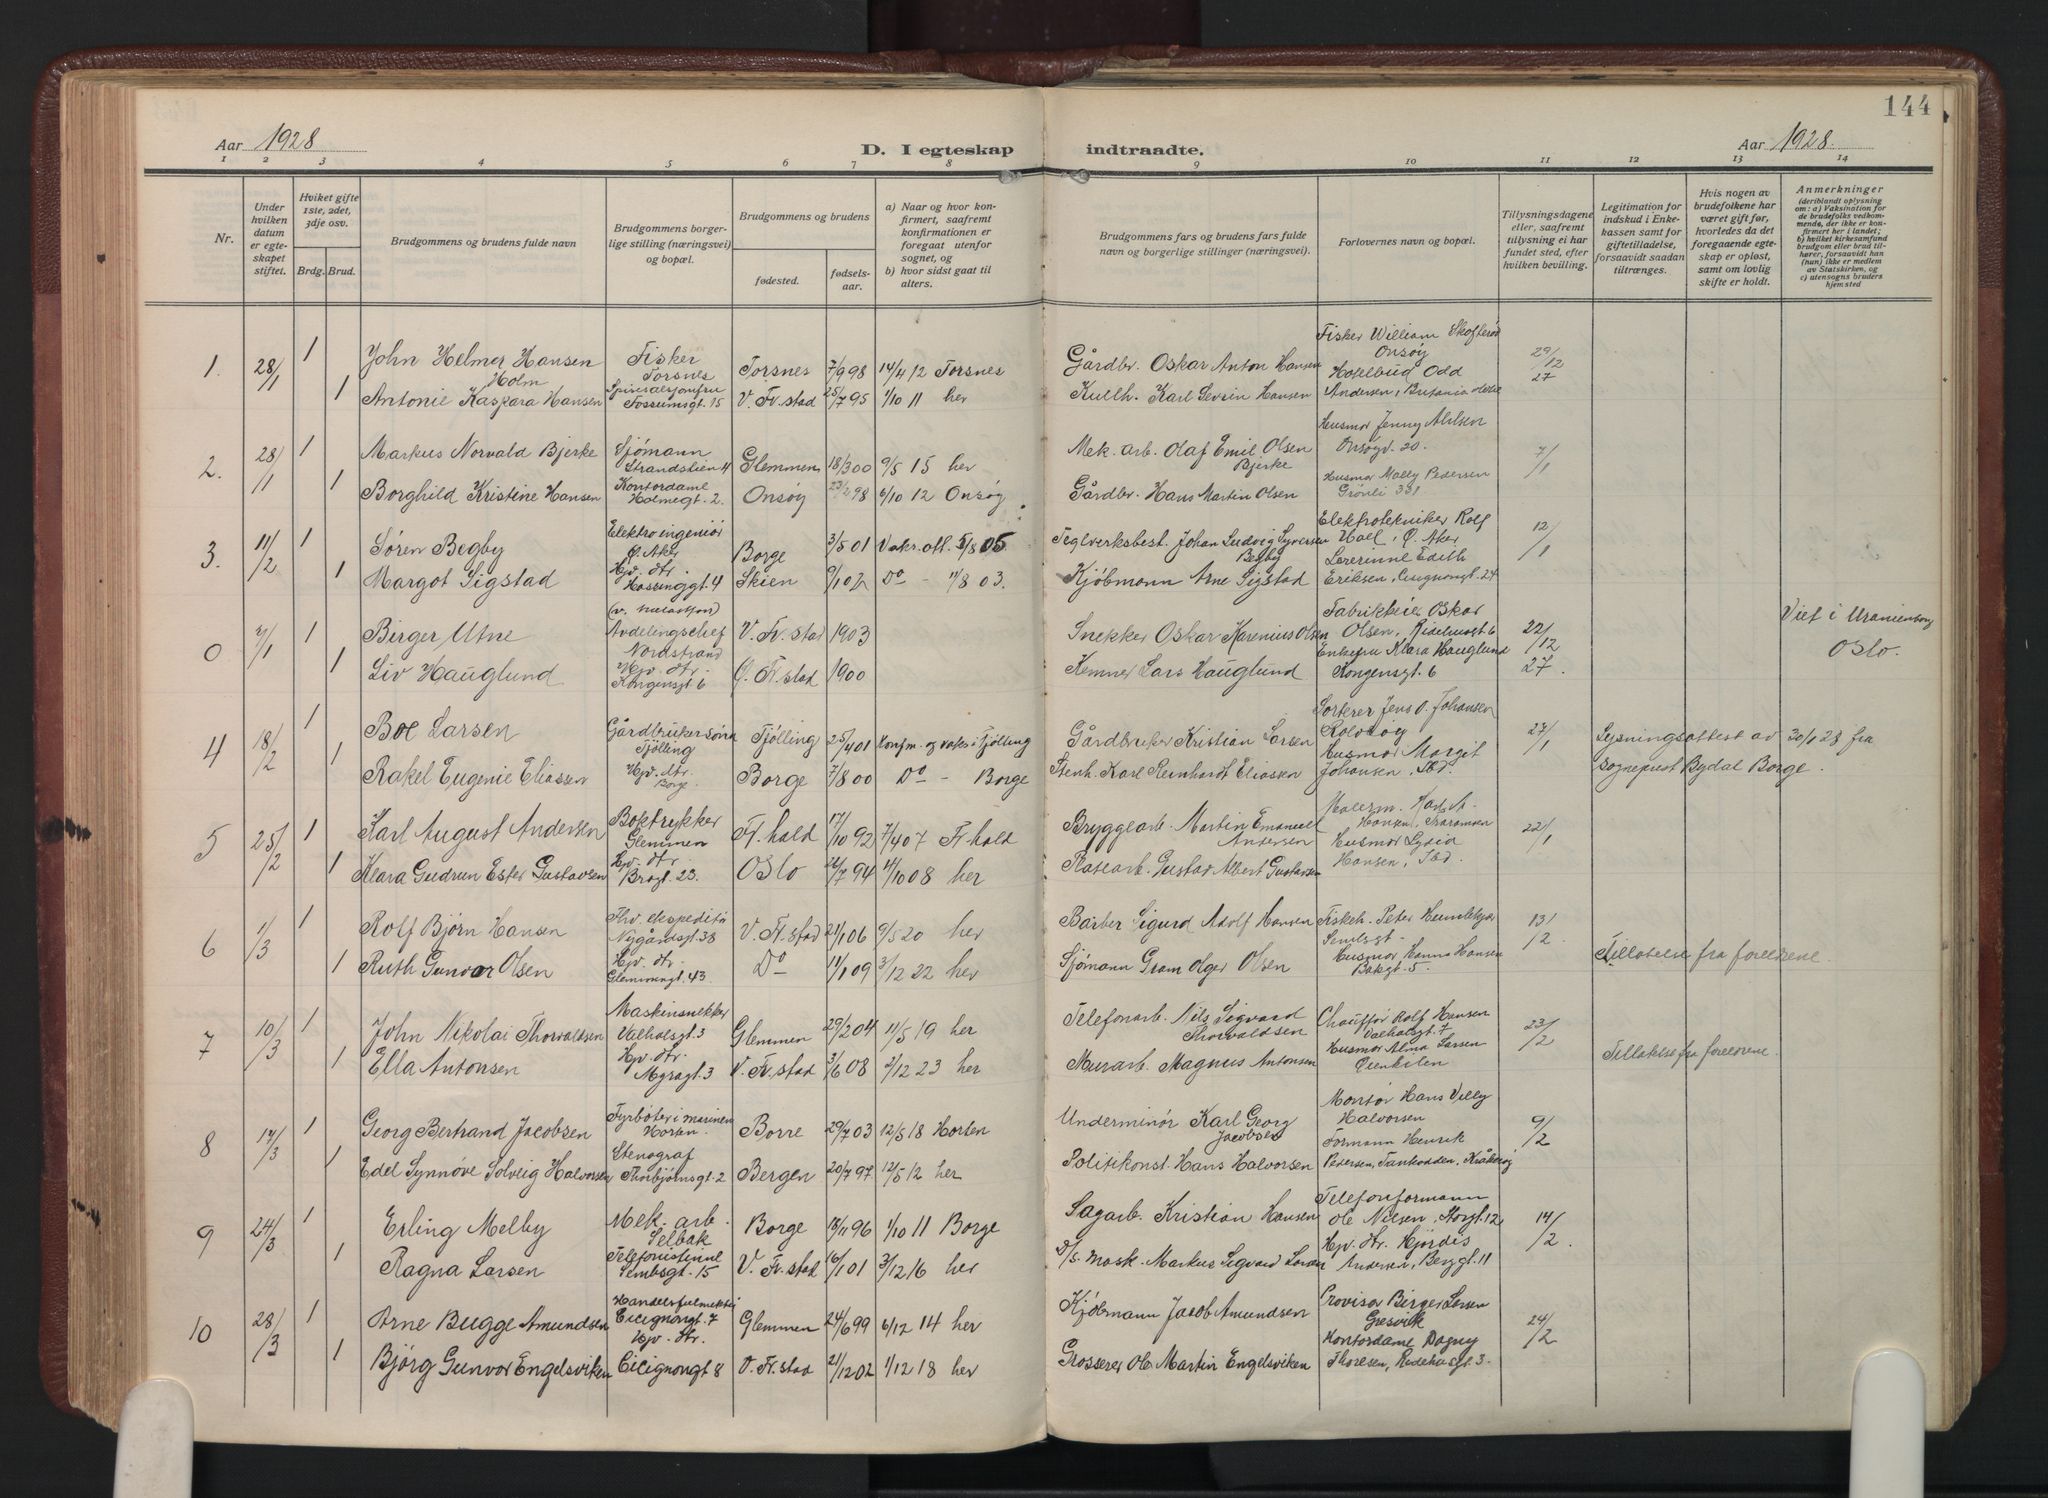 144
Aar 1928
D. I egteskap indtraadte.
Aar 1928.
1 2 3 4 5 6 7 8 9 10 11 12 13 14
Nr.
Under hvilken datum er egteskapet stiftet.
Hviket gifte 1ste, 2det, 3dje osv.
Brdg. Brud.
Brudgommens og brudens fulde navn
Brudgommens borgerlige stilling (næringsvei) og bopæl.
Brudgommens og brudens
fødested.
fødselsaar.
a) Naar og hvor konfirmert, saafremt konfirmationen er foregaat utenfor sognet, og
b) hvor sidst gaat til alters.
Brudgommens fars og brudens fars fulde navn og borgerlige stillinger (næringsvei).
Forlovernes navn og bopæl.
Tillysningsdagene eller, saafremt tillysning ei har fundet sted, efter hvilken bevilling.
Legitimation for indskud i Enkekassen samt for giftetilladelse, forsaavidt saadan tiltrænges.
Hvis nogen av brudefolkene har været gift før, hvorledes da det foregaaende egteskap er opløst, samt om lovlig skifte er holdt.
Anmerkninger
(deriblandt oplysning om: a) Vaksination for de brudefolks vedkommende, der ikke er konfirmert her i landet; b) hvilket kirkesamfund brudgom eller brud tilhører, forsaavidt han (hun) ikke er medlem av Statskirken, og c) utensogns bruders hjemsted
1. 28/1 1 John Helmer Hansen Holm Fisker Torsnes Torsnes 7/9 98 14/4 12 Torsnes Gårdbr. Oskar Anton Hansen Fisker William Onsøy 29/12 27
1 Antonie Kaspara Hansen Tossumsgt. 15 V. Fr.stad 25/7 95 1/10 11 her Karl Severin Hansen Hotelbud Odd Andersen, Britania
2. 28/1 1 Markus Norvald Bjerke Sjømann Strandstien 4 Glemmen 18/3 00 9/5 15 her Mek. arb. Olaf Emil Olsen Bjerke Husmor Jenny Onsøgt. 20. 7/1
1 Borghild Kristine Hansen Kontordame Holmegt. 2. Onsøy 23/2 98 6/10 12 Onsøy Gårdbr. Hans Martin Olsen Husmor Molly Pedersen Grønli 331
3. 11/2 1 Søren Begby Elektroingeniør Ø. Aker Borge 3/5 01 Vakr. att. 5/8 05 Teglverksbest. Johan Ludvig Syversen Begby Elektrotekniker Rolf Ø. Aker 12/1
1 Margot Sigstad Hjv. dtr. Hassinggt. 4 Skien 9/1 02 Do - 11/8 03. Kjøbmann Arne Sigstad Lærerinne Edith Eriksen, Cicignongt. 24
0 7/1 1 Birger Utne Avdelingschef Nordstrand V. Fr.stad 1903 Snekker Oskar Karenius Olsen Fabrikkeier Oskar Olsen, Ridehusgt 6 22/12 27. Viet i Uranienborg Oslo.
1 Liv Hauglund Hjv. dtr. Kongensgt 6 Ø. Fr.stad 1900 Kemner Lars Hauglund Enkefru Klara Hauglund Kongensgt. 6
4 18/2 1 Boe Larsen Gårdbrukersønn Tjølling Tjølling 25/4 01 Konfm. og vaks i Tjølling Gårdbruker Kristian Larsen Sorterer Jens O. Johansen Rolvsøy 27/1 Lysningsattest av 30/1 28 fra
1 Rakel Eugenie Eliassen Hjv. dtr. Borge Borge 7/8 00 Do - Borge Stenh. Karl Reinhardt Eliassen Husmor Margit Johansen, Ibd. sogneprest Bydal Borge.
5 25/2 1 Karl August Andersen Boktrykker Glemmen Fr. hald 17/10 92 7/4 07 Fr. hald Bryggearb. Martin Emanuel Andersen Malerm. Karl A. Hansen, 22/1
1 Klara Gudrun Ester Gustavsen Hjv. dtr. Bragt. 23. Oslo 26/7 94 11/10 08 her Gustav Albert Gustavsen Husmor Lydia Hansen, Ibd.
6 1/3 1 Rolf Bjørn Hansen Thv. ekspeditør Nygårdsgt. 38 V. Fr.stad 21/1 06 9/5 20 her Barber Sigurd Adolf Hansen Fiskeh. Peter 13/2
1 Ruth Gunvor Olsen Hjv. dtr. Glemmengt. 43 Do 11/1 09 3/12 22 her Sjømann Gram Olger Olsen Husmor Hanna Hansen Bakgt. 5. Tillatelse fra foreldrene.
7 10/3 1 John Nikolai Thorvaldsen Maskinsnekker Valhalsgt. 3 Glemmen 29/2 04 11/5 19 her Telefonarb. Nils Sigvard Thorvaldsen Chauffør Rolf Hansen Valhalsgt. 7 23/2
1 Ella Antonsen Hjv. dtr. Myragt. 3 V. Fr.stad 3/6 08 2/12 23 her Murarb. Magnus Antonsen Husmor Alma Larsen Tillatelse fra foreldrene.
8 17/3 1 Georg Bertrand Jacobsen Fyrbøter i marinen Horten. Borre 29/7 03 12/5 18 Horten Underminør Karl Georg Jacobsen Montør Hans Villy Halvorsen 9/2
1 Edel Synnøve Solveig Halvorsen Stenograf Thorbjørnsgt. 2 Bergen 20/7 97 12/5 12 her Politikonst. Hans Halvorsen Formann Henrik Pedersen, Tankodden, Kråkerøy
9 24/3 1 Erling Melby Mek. arb. Selbak Borge 18/11 96 1/10 11 Borge Sagarb. Kristian Hansen Telefonformann Ole Nilsen, Storgt. 12 14/2.
1 Ragna Larsen Telefonistinne Lembsgt. 15 V. Fr.stad 16/1 01 3/12 16 her D/S. mask. Markus Sigvard Larsen Hjv. dtr. Hjørdis Andersen, Berggt. 11
10 28/3 1 Arne Bugge Amundsen Handelsfulmektig Cicignongt. 7 Glemmen 24/6 99 6/12 14 her Kjøbmann Jacob Amundsen Provisor Birger Larsen Gresvik 24/2
1 Bjørg Gunvor Engelsviken Hjv. dtr. Cicignongt 8 V. Fr.stad 21/12 02 1/12 18 her Grosserer Ole Martin Engelsviken Kontordame Dagny Thoresen, Ridehusgt. 3.